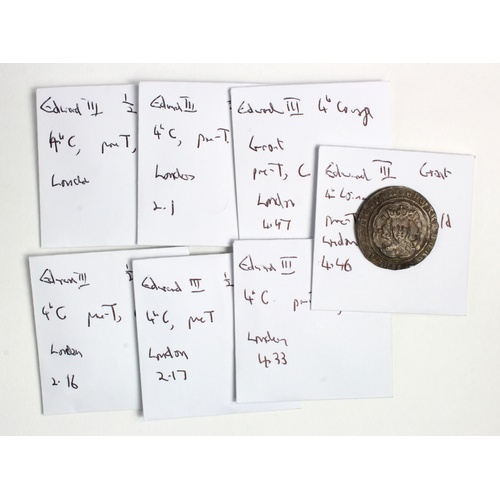 Edward III 1/2
4th C, pre-T,
London
Edward III
4th C, pre-T,
London
2.1
Edward III 4th Coinage
Groat
pre-T, C
London
4.47
Edward III Groat
4th Coin
pre-T
London
4.46
Edward III
4th C pre-T,
London
2.16
Edward III 1/2
4th C, pre T
London
2.17
Edward III
4th C. pre-T
London
4.33